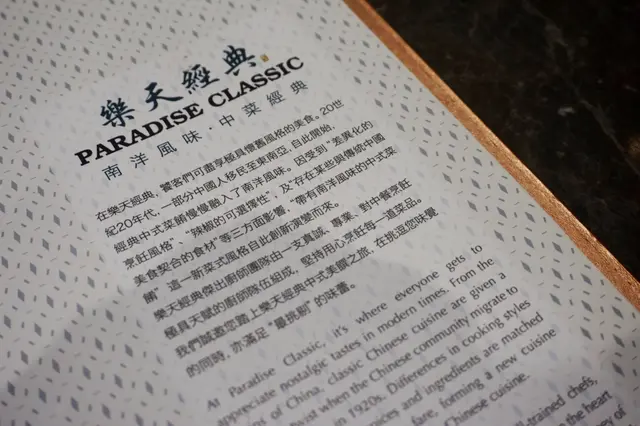 樂天經典
PARADISE CLASSIC
南洋風味·中菜經典
在樂天經典，饕客們可盡享極具懷舊風格的美食。20世
紀20年代，一部分中國人移民至東南亞，自此開始，
經典中式菜餚慢慢融入了南洋風味。因受到“差異化的
烹飪風格”，“辣椒的可選擇性”，及“存在某些與傳統中國
美食契合的食材”等三方面影響，“帶有南洋風味的中式菜
餚”這一新菜式風格自此創新演變而來。
樂天經典傑出廚師團隊由一支真誠、專業、對中餐烹飪
極具天賦的廚師隊伍組成，堅持用心烹飪每一道菜品。
我們誠邀您踏上樂天經典中式美饌之旅，在挑逗您味覺
的同時，亦滿足“最挑剔”的味蕾。
At Paradise Classic, it's where everyone gets to
appreciate nostalgic tastes in modern times. From the
of China, classic Chinese cuisine are given a
twist when the Chinese community migrate to
in 1920s. Differences in cooking styles
spices and ingredients are matched
fare, forming a new cuisine
Chinese cuisine.
chefs,
the heart
of